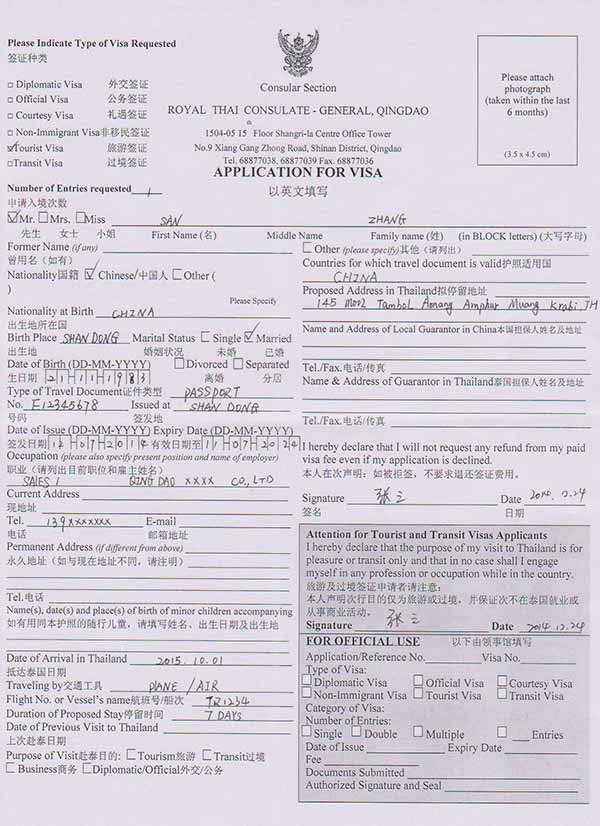 Please Indicate Type of Visa Requested
签证种类
□ Diplomatic Visa 外交签证
□ Official Visa 公务签证
□ Courtesy Visa 礼遇签证
□ Non-Immigrant Visa非移民签证
☑Tourist Visa 旅游签证
□Transit Visa 过境签证
Consular Section
ROYAL THAI CONSULATE - GENERAL, QINGDAO
1504-05 15 Floor Shangri-la Centre Office Tower
No.9 Xiang Gang Zhong Road, Shinan District, Qingdao
Tel. 68877038, 68877039 Fax. 68877036
APPLICATION FOR VISA
以英文填写
Please attach
photograph
(taken within the last
6 months)
(3.5 x 4.5 cm)
Number of Entries requested 1
申请入境次数
☑Mr. □Mrs. □Miss SAN ZHANG
先生 女士 小姐 First Name (名) Middle Name Family name (姓) (in BLOCK letters) (大写字母)
Former Name (if any)
曾用名（如有）
Nationality国籍 ☑ Chinese/中国人 □Other (
)
Please Specify
Nationality at Birth CHINA
出生地所在国
Birth Place SHANDONG Marital Status □ Single ☑ Married
出生地 婚姻状况 未婚 已婚
Date of Birth (DD-MM-YYYY) □Divorced □Separated
生日期 21-11-1983 离婚 分居
Type of Travel Document证件类型 PASSPORT
No. E12345678 Issued at SHAN DONG
号码 签发地
Date of Issue (DD-MM-YYYY) Expiry Date (DD-MM-YYYY)
签发日期 12-07-2014 有效日期至 11-07-2024
Occupation (please also specify present position and name of employer)
职业（请列出目前职位和雇主姓名）
SALES / QINGDAO XXXX CO., LTD
Current Address
现地址
Tel. 139xxxxxxx E-mail
电话 邮箱地址
Permanent Address (if different from above)
永久地址（如与现在地址不同，请注明）
Tel.电话
Name(s), date(s) and place(s) of birth of minor children accompanying
如有用同本护照的随行儿童，请填写姓名、出生日期及出生地
Date of Arrival in Thailand 2015.10.01
抵达泰国日期
Traveling by交通工具 PLANE / AIR
Flight No. or Vessel's name航班号/船次 TR1234
Duration of Proposed Stay停留时间 7 DAYS
Date of Previous Visit to Thailand
上次赴泰日期
Purpose of Visit赴泰目的: □Tourism旅游 □Transit过境
□ Business商务 □Diplomatic/Official外交/公务
□ Other (please specify)其他（请列出）
Countries for which travel document is valid护照适用国
CHINA
Proposed Address in Thailand拟停留地址
145 Moo2 Tambol Aonang Amphur Muang Krabi TH
Name and Address of Local Guarantor in China本国担保人姓名及地址
Tel./Fax.电话/传真
Name & Address of Guarantor in Thailand泰国担保人姓名及地址
Tel./Fax.电话/传真
I hereby declare that I will not request any refund from my paid
visa fee even if my application is declined.
本人在次声明：如被拒签，不要求退还签证费用。
Signature 张三 Date 2014.12.24
签名 日期
Attention for Tourist and Transit Visas Applicants
I hereby declare that the purpose of my visit to Thailand is for
pleasure or transit only and that in no case shall I engage
myself in any profession or occupation while in the country.
旅游及过境签证申请者请注意：
本人声明次行目的仅为旅游或过境，并保证次不在泰国就业或
从事商业活动。
Signature 张三 Date 2014.12.24
FOR OFFICIAL USE 以下由领事馆填写
Application/Reference No. Visa No.
Type of Visa:
□Diplomatic Visa □Official Visa □Courtesy Visa
□Non-Immigrant Visa □Tourist Visa □Transit Visa
Category of Visa:
Number of Entries:
□Single □Double □Multiple □ Entries
Date of Issue Expiry Date
Fee
Documents Submitted
Authorized Signature and Seal